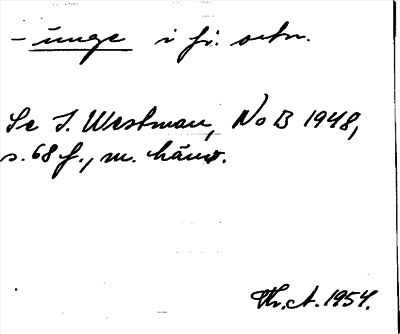 -unge i fi. ortn.
Se I. Westman, NoB 1948,
s. 68 f., m. hänv.
Th. A. 1954.